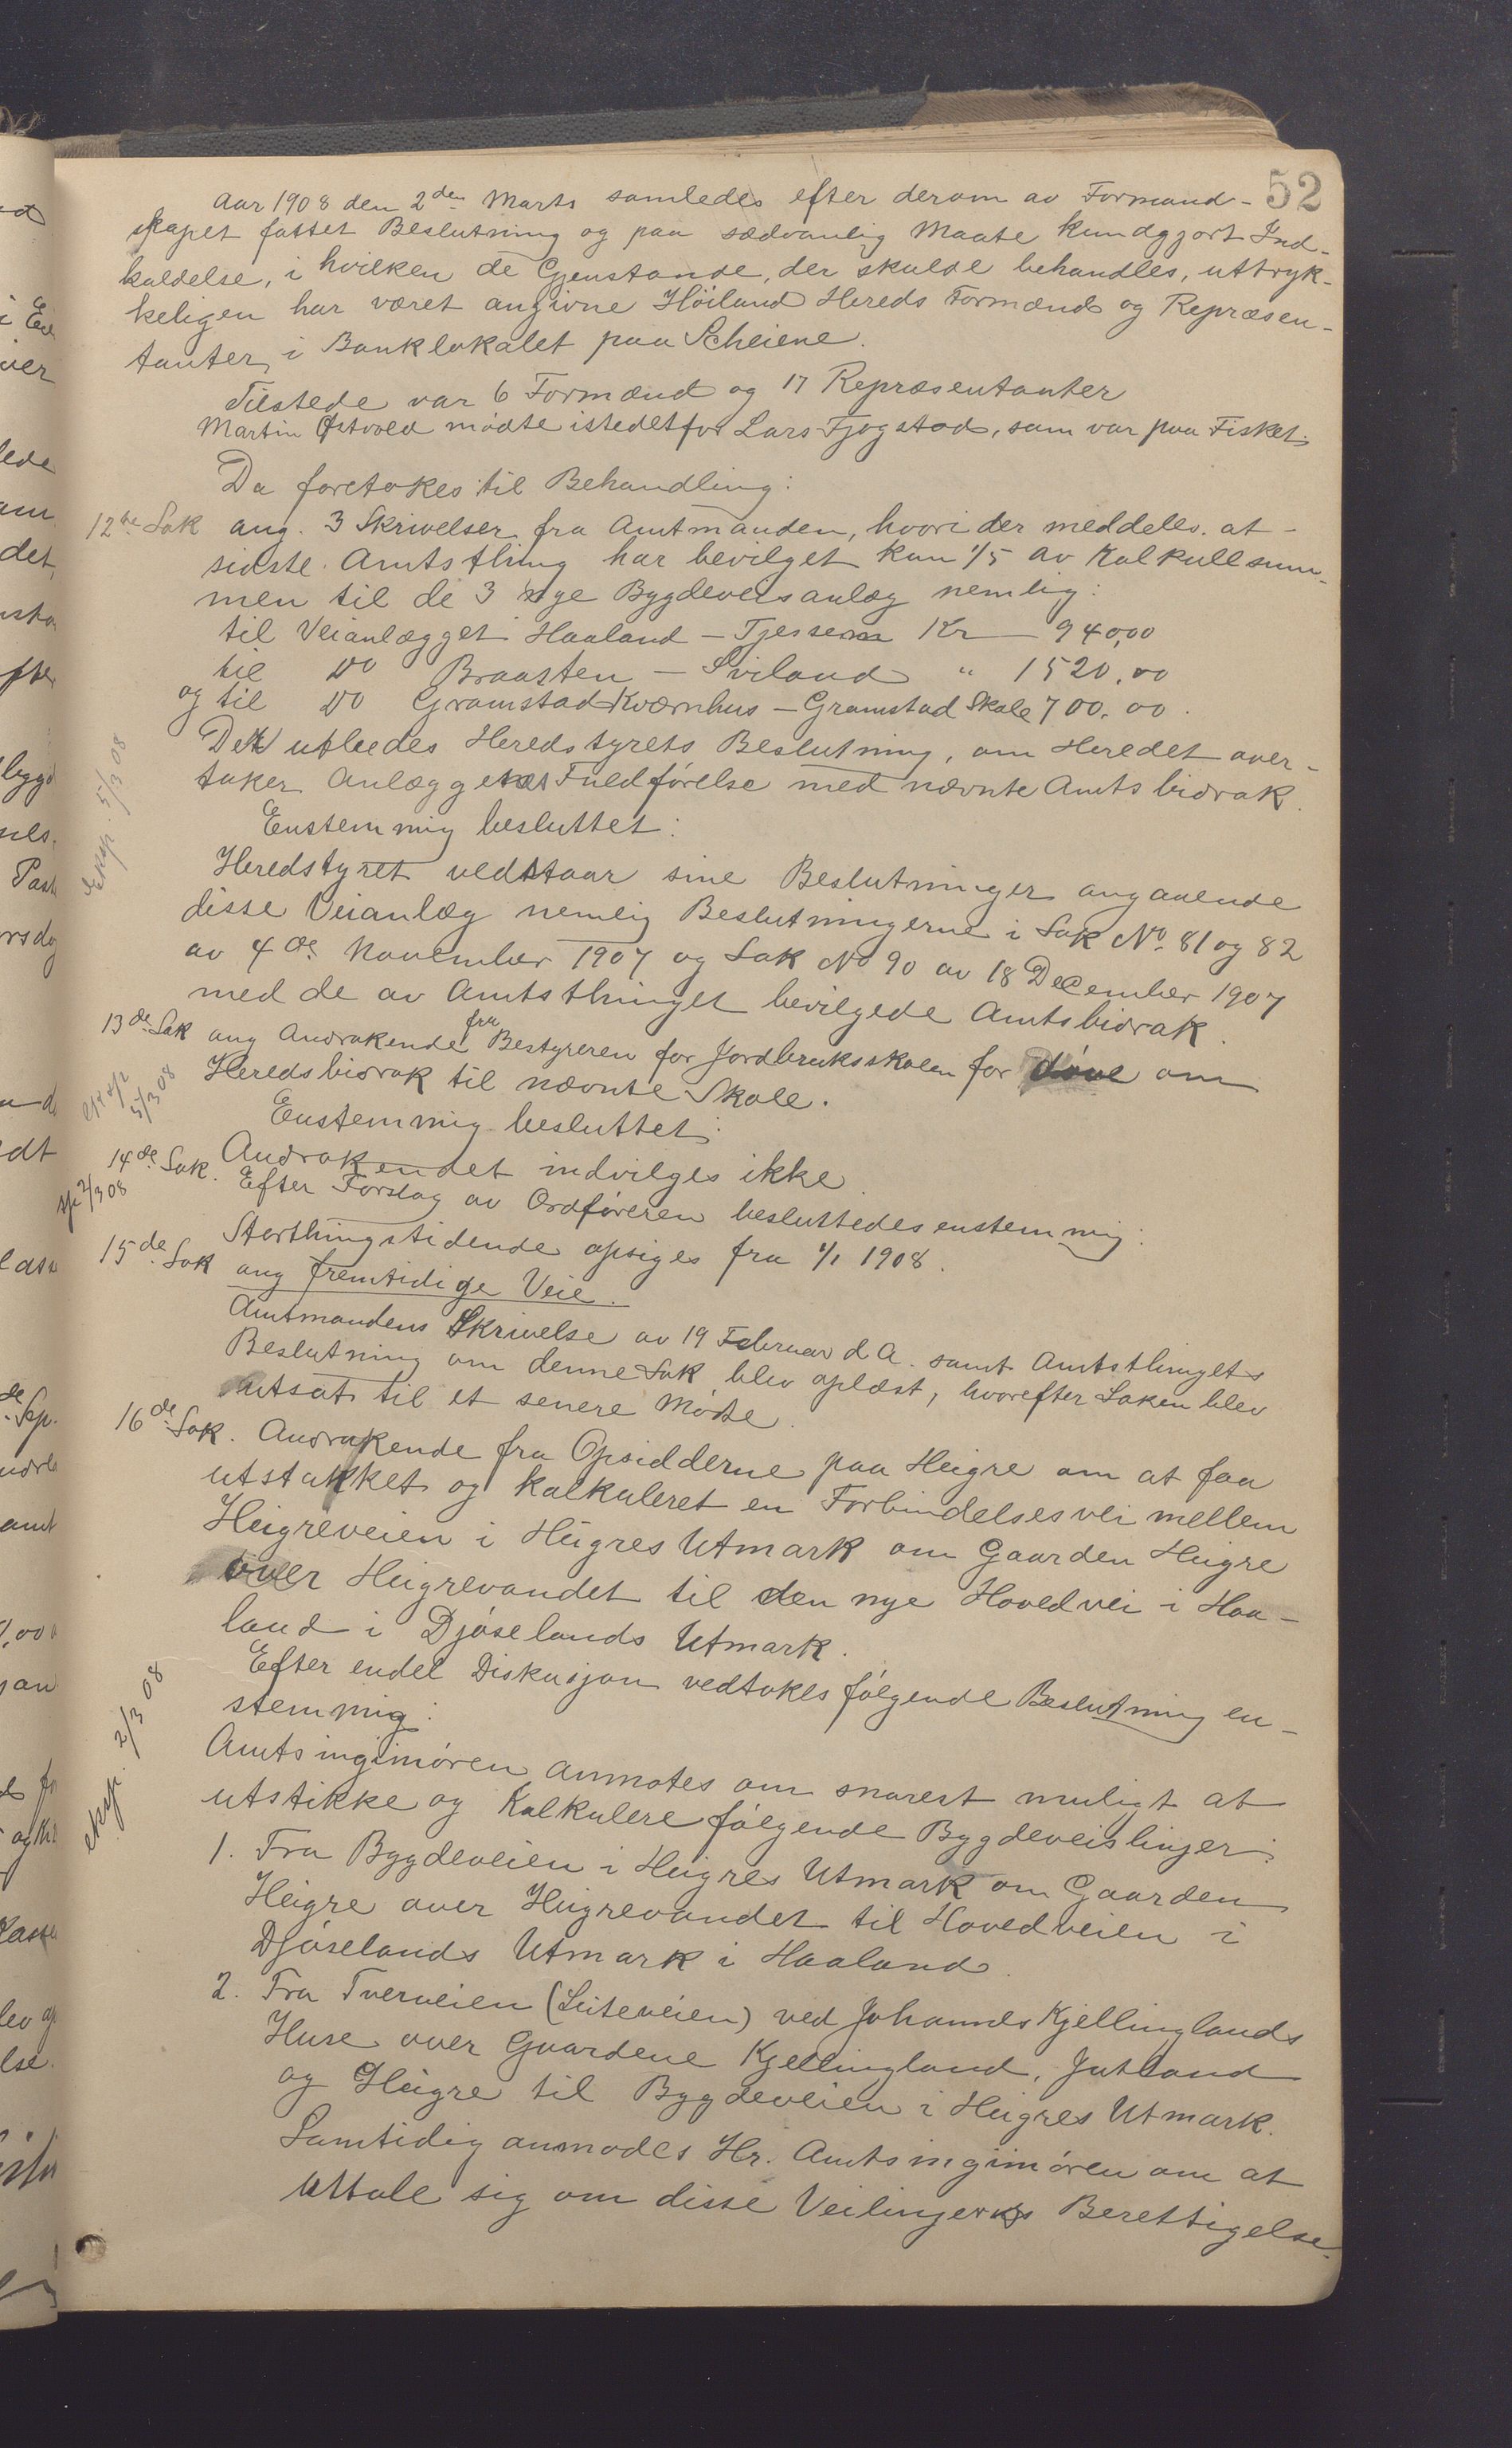 52
Aar 1908 den 2den Marts samledes efter derom av Formand-
skapet fattet Beslutning og paa sædvanlig Maate kundgjort Ind-
kaldelse, i hvilken de Gjenstande, der skulde behandles, uttryk-
keligen har været angivne Höiland Hereds Formænd og Repræsen-
tanter, i Banklokalet paa Scheiene.
Tilstede var 6 Formænd og 17 Repræsentanter
Martin Østvold mødte istedetfor Lars Fjogstad, som var paa Fisket.
Da foretokes til Behandling:
12te Sak ang. 3 Skrivelser fra Amtmanden, hvori der meddeles at -
sidste Amtsthing har bevilget kun 1/5 av Kalkullsum-
men til de 3 nye Bygdeveisanlæg nemlig:
til Veianlægget Haaland - Tjessem Kr 940,00
til Do Braasten - Sviland " 1520,00
og til Do Gramstad Kværnhus - Gramstad Skole 700,00.
Det utbedes Heredstyrets Beslutning, om Heredet over-
taker Anlæggenes Fuldførelse med nævnte Amtsbidrak.
Eksp. 5/3 08
Enstemmig besluttet:
Heredstyret vedstaar sine Beslutninger angaaende
disse Veianlæg nemlig Beslutningerne i Sak No. 81 og 82
av 4de November 1907 og Sak No 90 av 18 December 1907
med de av Amtsthinget bevilgede Amtsbidrak.
13de Sak ang Andrakende fra Bestyreren for Jordbruksskolen for døve om
Heredsbidrak til nævnte Skole.
eksp 5/3 08
Enstemmig besluttet:
Andrakendet indvilges ikke.
14de Sak. Efter Forslag av Ordføreren besluttedes enstemmig:
2/3 08
Storthingstidende opsiges fra 1/1 1908.
15de Sak ang fremtidige Veie.
Amtmandens Skrivelse av 19 Februar d A. samt Amtsthingets
Beslutning om denne Sak blev oplæst, hvorefter Saken blev
utsat til et senere Møte.
16de Sak. Andrakende fra Opsidderne paa Heigre om at faa
utstakket og kalkuleret en Forbindelsesvei mellem
Heigreveien i Heigres Utmark om Gaarden Heigre
over Heigrevandet til den nye Hovedvei i Haa-
land i Djøselands Utmark.
Efter endel Diskusjon vedtokes følgende Beslutning en-
stemmig:
eksp. 2/3 08
Amtsinginiøren anmotes om snarest muligt at
utstikke og Kalkulere følgende Bygdeveislinjer:
1. Fra Bygdeveien i Heigres Utmark om Gaarden
Heigre over Heigrevandet til Hovedveien i
Djøselands Utmark i Haaland.
2. Fra Tverveien (Leiteveien) ved Johannes Kjellinglands
Huse over Gaardene Kjellingland, Jutland
og Heigre til Bygdeveien i Heigres Utmark.
Samtidig anmodes Hr. Amtsinginiøren om at
uttale sig om disse Veilinjers Berettigelse.